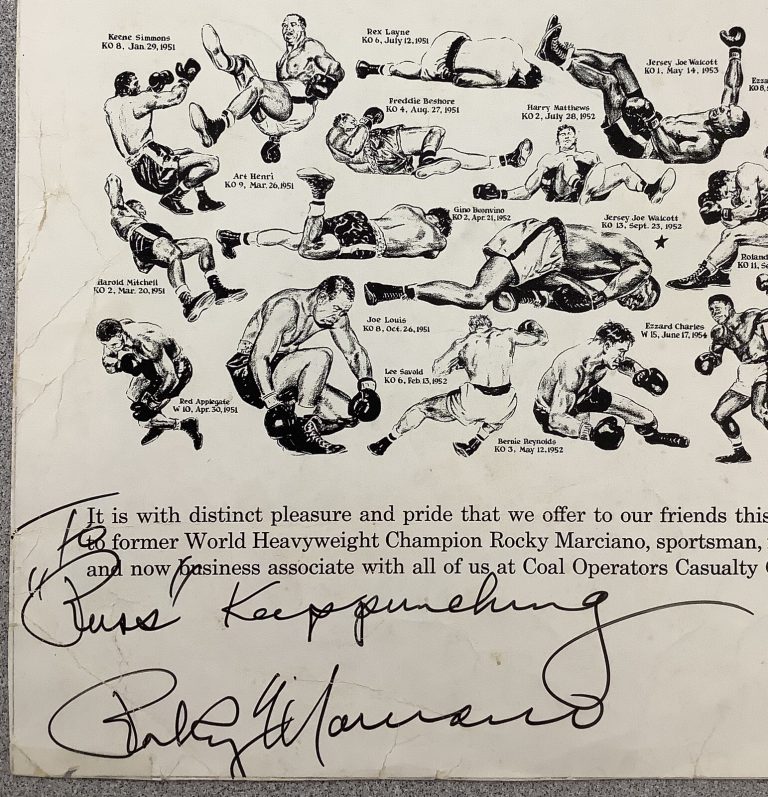 Keene Simmons
KO 8, Jan. 29, 1951
Rex Layne
KO 6, July 12, 1951
Jersey Joe Walcott
KO 1, May 14, 1953
Ezza
KO 8, S
Freddie Beshore
KO 4, Aug. 27, 1951
Harry Matthews
KO 2, July 28, 1952
Art Henri
KO 9, Mar. 26, 1951
Gino Buonvino
KO 2, Apr. 21, 1952
Jersey Joe Walcott
KO 13, Sept. 23, 1952
Harold Mitchell
KO 2, Mar. 20, 1951
Roland
KO 11, Se
Joe Louis
KO 8, Oct. 26, 1951
Ezzard Charles
W 15, June 17, 1954
Lee Savold
KO 6, Feb. 13, 1952
Red Applegate
W 10, Apr. 30, 1951
Bernie Reynolds
KO 3, May 12, 1952
It is with distinct pleasure and pride that we offer to our friends this
to former World Heavyweight Champion Rocky Marciano, sportsman,
and now business associate with all of us at Coal Operators Casualty C
To
"Russ" Keep punching
Rocky Marciano